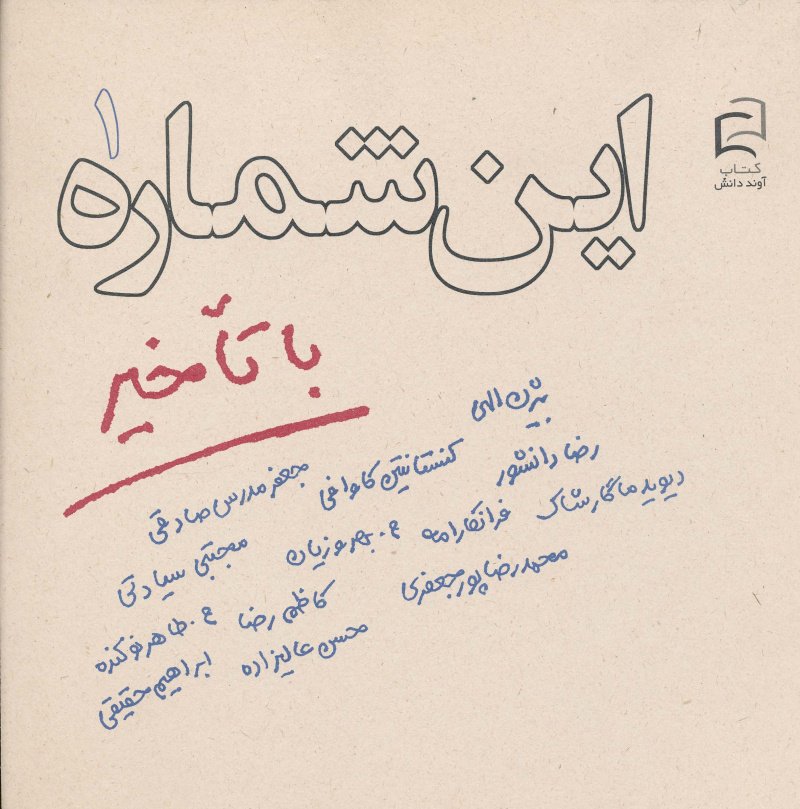 این شماره ۱
کتاب
آوند دانش
با تأخیر
بیژن الهی
رضا دانشور
کنستانتین کاوافی
جعفر مدرس صادقی
دیوید ماگارشاک
فرانکارامه
م. بهروزیان
مجتبی سیادتی
محمدرضا پورجعفری
کاظم رضا
م. طاهر نوکنده
محسن عالیزاده
ابراهیم حقیقی